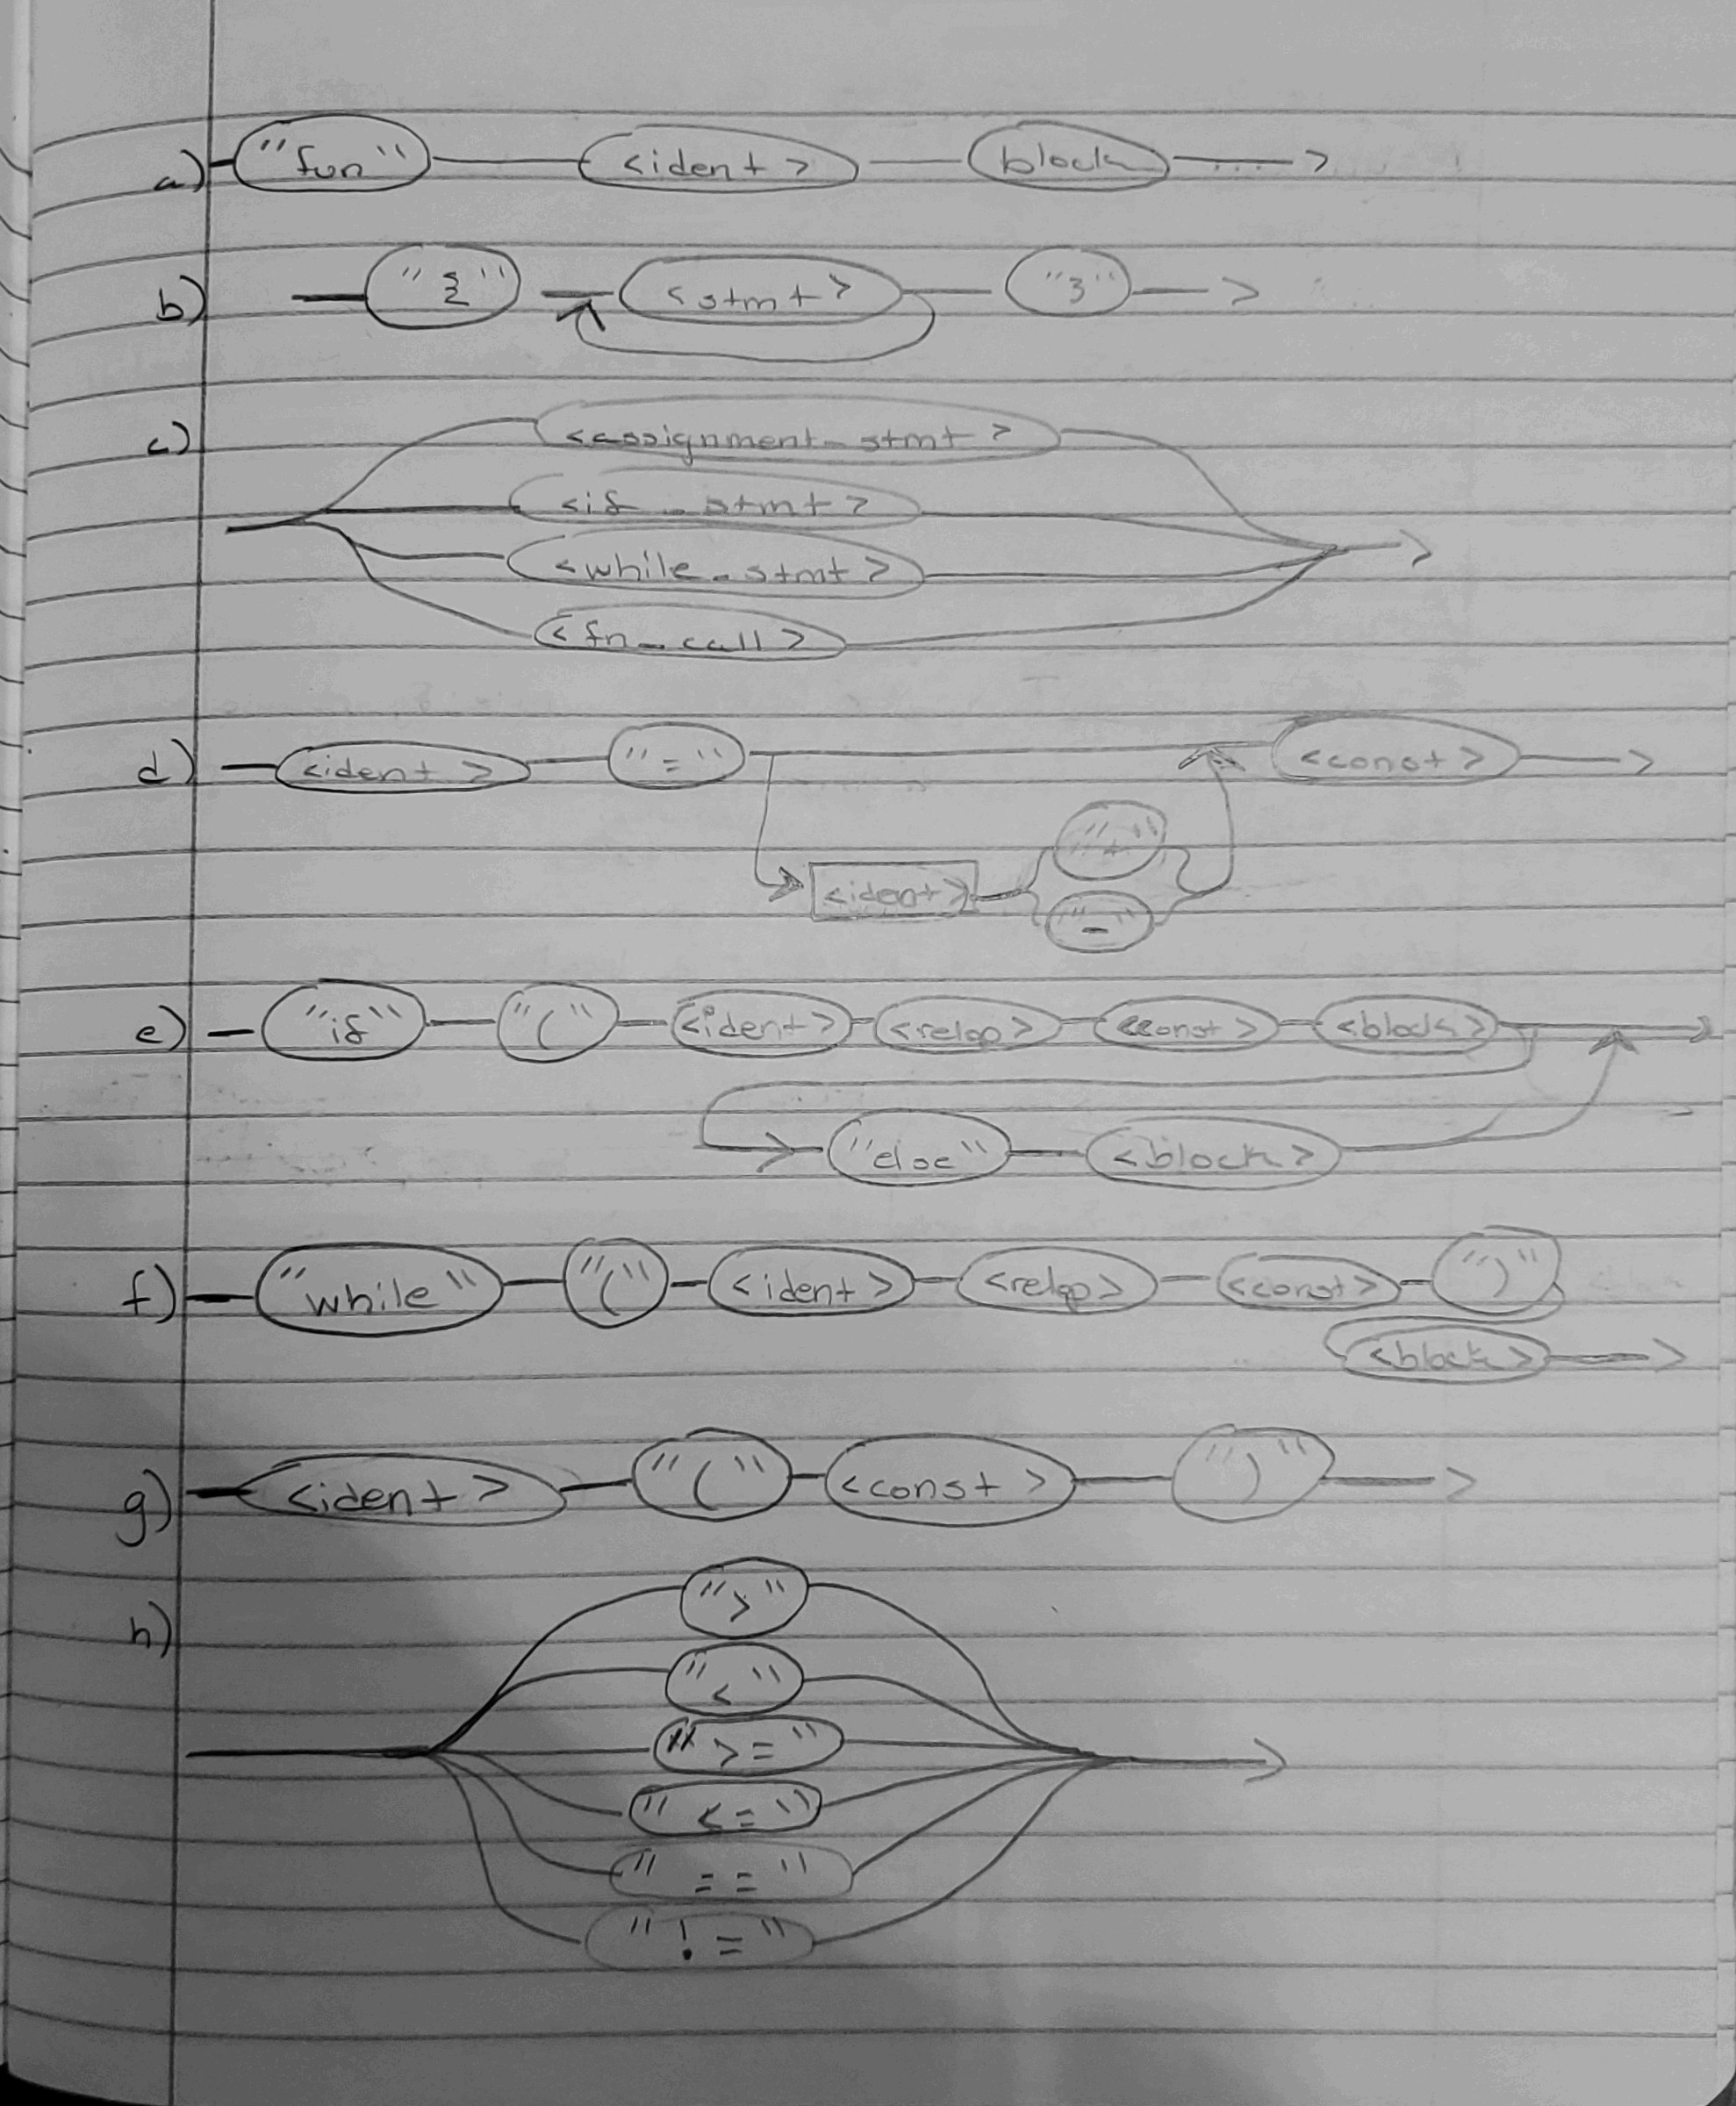 a) "fun" <ident> block
b) "{" <stmt> "}"
c) <assignment_stmt>
<if_stmt>
<while_stmt>
<fn_call>
d) <ident> "=" <const>
"+"
<ident>
"-"
e) "if" "(" <ident> <relop> <const> <block>
"else" <block>
f) "while" "(" <ident> <relop> <const> ")"
<block>
g) <ident> "(" <const> ")"
h) ">"
"<"
">="
"<="
"=="
"!="